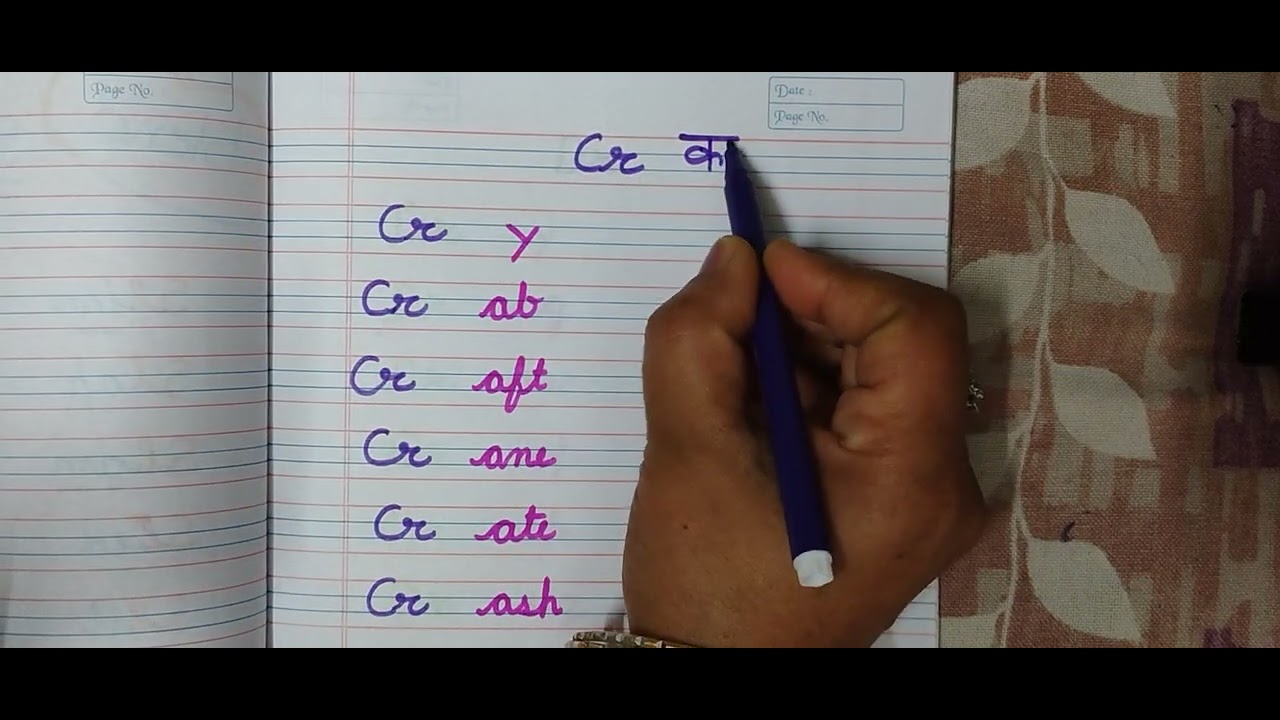 Page No.
Date :
Page No.
Cr क
Cr y
Cr ab
Cr aft
Cr ane
Cr ate
Cr ash